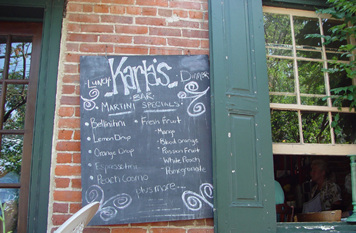 Lunch Karla's Dinner
BAR
MARTINI SPECIALS:
• Bellistini
• Lemon Drop
• Orange Drop
• Espresstini
• Peach Cosmo
• Fresh Fruit
Mango
Blood Orange
Passion Fruit
White Peach
Pomegranate
plus more...